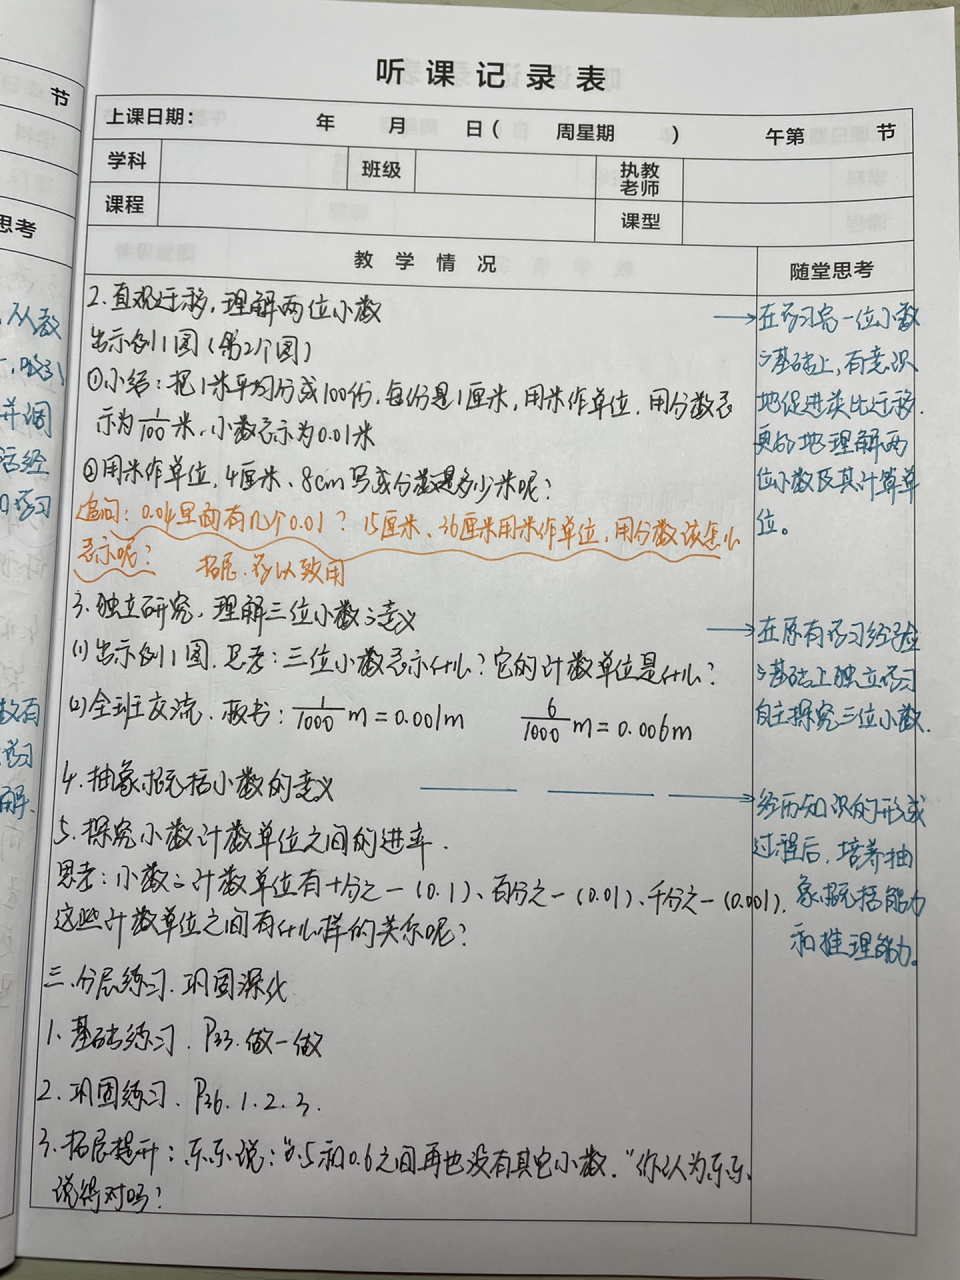 听课记录表
节
上课日期： 年 月 日（ 周星期 ） 午第 节
学科 班级 执教老师
课程 课型
思考
教学情况 随堂思考
2.直观迁移，理解两位小数
出示例1图（第2个图）
①小结：把1米平均分成100份，每份是1厘米，用米作单位，用分数表
示为1/100米，小数表示为0.01米
②用米作单位，4厘米、8cm写成分数是多少米呢？
追问：0.04里面有几个0.01？15厘米、36厘米用米作单位，用分数该怎么
表示呢？ 拓展.学以致用
3.独立研究，理解三位小数之意义
(1)出示例1图.思考：三位小数表示什么？它的计数单位是什么？
(2)全班交流.板书：1/1000 m=0.001m 6/1000 m=0.006m
4.抽象概括小数的意义
5.探究小数计数单位之间的进率.
思考：小数之计数单位有十分之一(0.1)、百分之一(0.01)、千分之一(0.001).
这些计数单位之间有什么样的关系呢？
三.分层练习.巩固深化
1.基础练习.P33.做一做
2.巩固练习.P36.1.2.3.
3.拓展提升：东东说：“0.5和0.6之间再也没有其它小数.”你认为东东
说得对吗？
→在学习完一位小数
之基础上，有意识
地促进类比迁移.
更好地理解两
位小数及其计算单
位。
→在原有学习经验
之基础上独立学习
自主探究三位小数.
→经历知识的形成
过程后.培养抽
象概括能力
和推理能力。